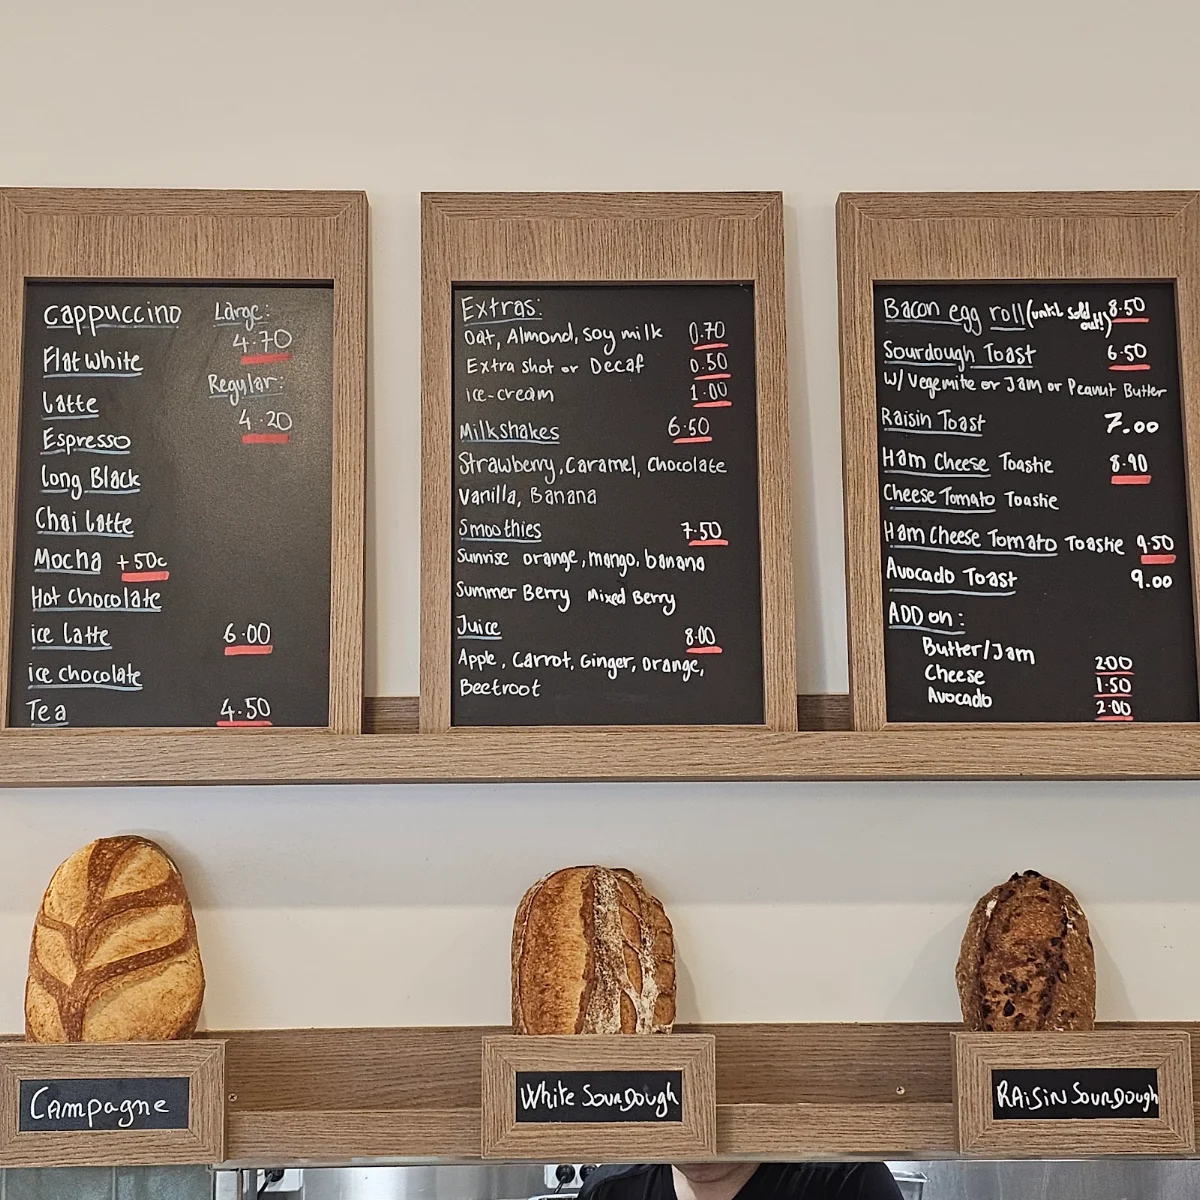 Cappuccino Large:
4.70
Flat white
Regular:
Latte
4.20
Espresso
Long Black
Chai Latte
Mocha +50c
Hot chocolate
ice latte 6.00
ice chocolate
Tea 4.50
Extras:
Oat, Almond, soy milk 0.70
Extra shot or Decaf 0.50
ice-cream 1.00
Milkshakes 6.50
Strawberry, Caramel, Chocolate
Vanilla, Banana
Smoothies 7.50
Sunrise orange, mango, banana
Summer Berry Mixed Berry
Juice 8.00
Apple, Carrot, Ginger, Orange,
Beetroot
Bacon egg roll (until sold out!) 8.50
Sourdough Toast 6.50
w/ Vegemite or Jam or Peanut Butter
Raisin Toast 7.00
Ham Cheese Toastie 8.90
Cheese Tomato Toastie
Ham Cheese Tomato Toastie 9.50
Avocado Toast 9.00
ADD on:
Butter/Jam 2.00
Cheese 1.50
Avocado 2.00
Campagne
White SourDough
RAiSiN SourDough